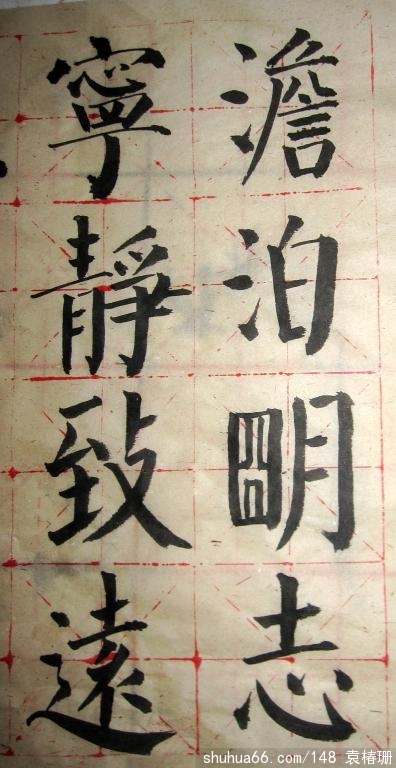 澹泊明志
寧靜致遠
shuhua66.com/148 袁椿珊